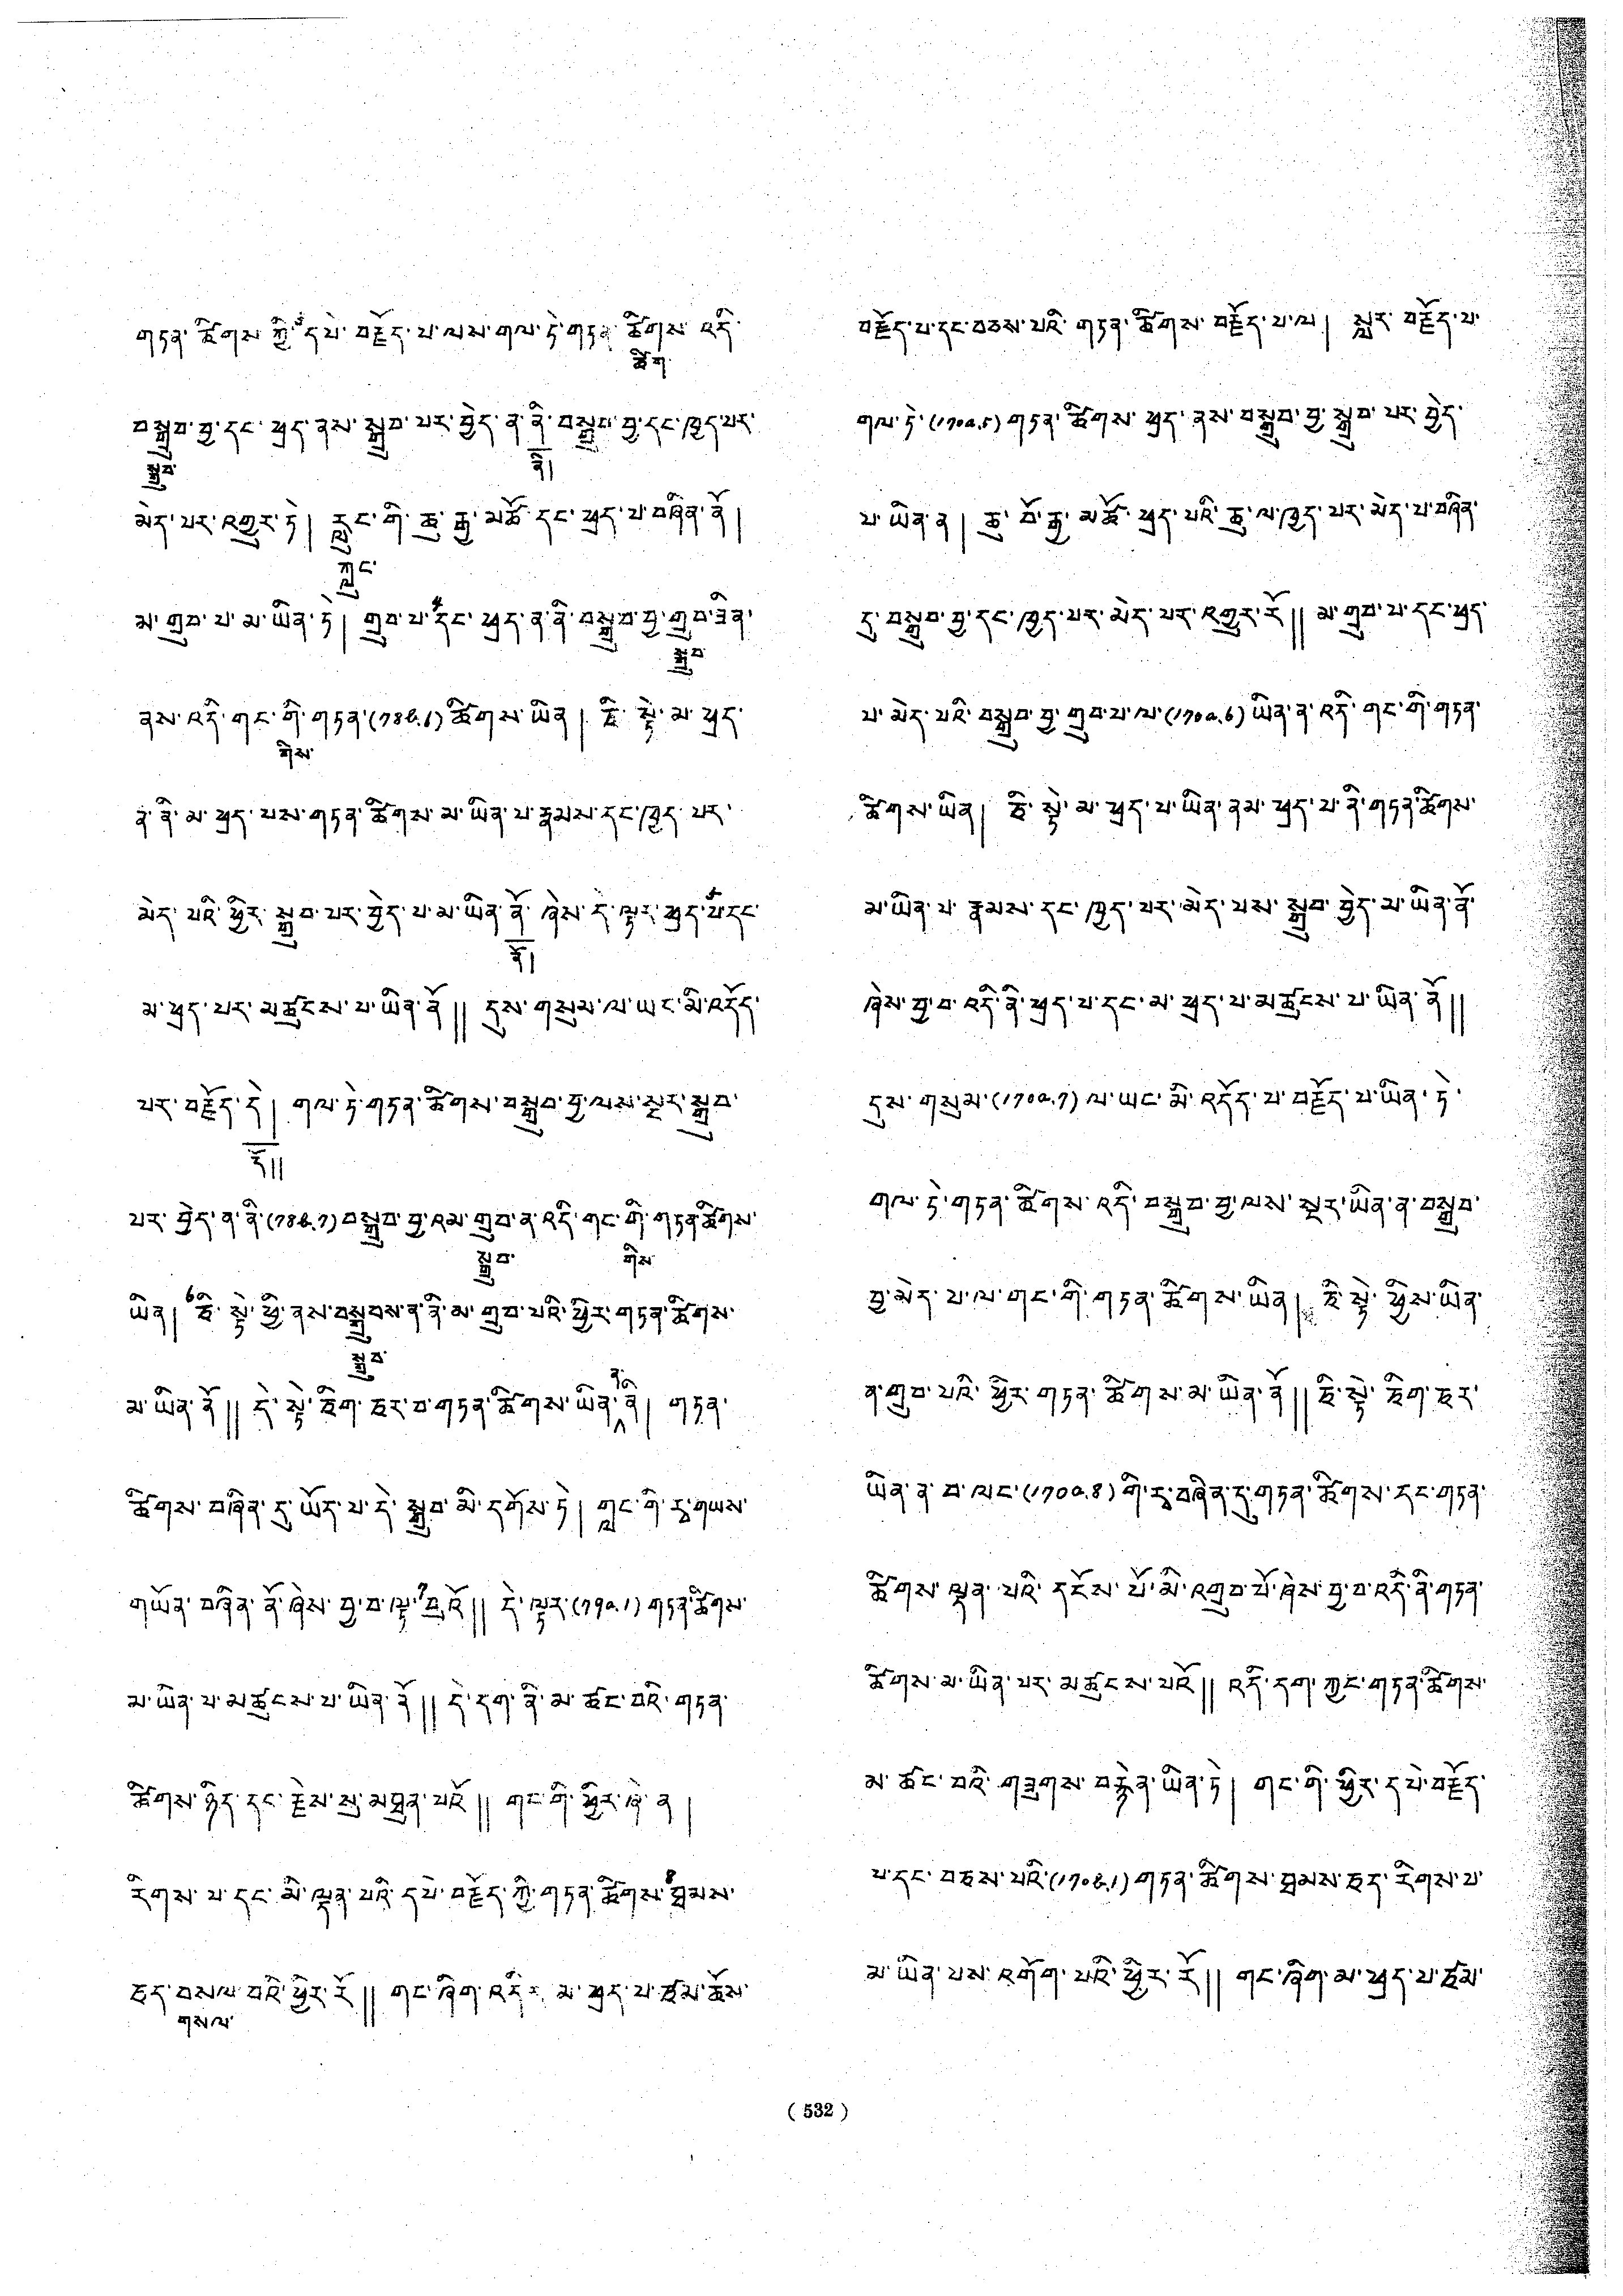 གཏན་ཚིགས་ཀྱི་ དཔེ་བརྗོད་པ་ལས་གལ་ཏེ་གཏན་ཚིགས་འདི་
ཚིག་
བསྒྲུབ་བྱ་དང་ཕྲད་ནས་སྒྲུབ་པར་བྱེད་ན་ནི་བསྒྲུབ་བྱ་དང་ཁྱད་པར་
སྒྲུབ་ ནི།
མེད་པར་འགྱུར་ཏེ། རླུང་གི་ཆུ་རྒྱ་མཚོ་དང་ཕྲད་པ་བཞིན་ནོ།
ཀླུང་
མ་གྲུབ་པ་མ་ཡིན་ཏེ། གྲུབ་པ་དང་ཕྲད་ན་ནི་བསྒྲུབ་བྱ་གྲུབ་ཟིན་
སྒྲུབ་
ནས་འདི་གང་གི་གཏན་(78b.6)ཚིགས་ཡིན། ཅི་སྟེ་མ་ཕྲད་
གིས་
ན་ནི་མ་ཕྲད་པས་གཏན་ཚིགས་མ་ཡིན་པ་རྣམས་དང་ཁྱད་པར་
མེད་པའི་ཕྱིར་སྒྲུབ་པར་བྱེད་པ་མ་ཡིན་ནོ་ཞེས་དེ་ལྟར་ཕྲད་པ་དང་
ནོ།
མ་ཕྲད་པར་མཚུངས་པ་ཡིན་ནོ།། དུས་གསུམ་ལ་ཡང་མི་འདོད་
པར་བརྗོད་དེ། གལ་ཏེ་གཏན་ཚིགས་བསྒྲུབ་བྱ་ལས་སྔར་སྒྲུབ་
དོ།།
པར་བྱེད་ན་ནི་(78b.7)བསྒྲུབ་བྱ་འམ་གྲུབ་ན་འདི་གང་གི་གཏན་ཚིགས་
སྒྲུབ་ གིས་
ཡིན། ཅི་སྟེ་ཕྱི་ནས་བསྒྲུབས་ན་ནི་མ་གྲུབ་པའི་ཕྱིར་གཏན་ཚིགས་
སྒྲུབ་
མ་ཡིན་ནོ།། དེ་སྟེ་ཅིག་ཅར་བ་གཏན་ཚིགས་ཡིན་ན་ནི། གཏན་
ཚིགས་བཞིན་དུ་ཡོད་པ་དེ་སྒྲུབ་མི་དགོས་ཏེ། གླང་གི་རྭ་གཡས་
གཡོན་བཞིན་ནོ་ཞེས་བྱ་བ་ལྟ་བུའོ།། དེ་ལྟར་(79a.1)གཏན་ཚིགས་
མ་ཡིན་པ་མཚུངས་པ་ཡིན་ནོ།། དེ་དག་ནི་མ་ཚང་བའི་གཏན་
ཚིགས་ཉིད་དང་རྗེས་སུ་མཐུན་པའོ།། གང་གི་ཕྱིར་ཞེ་ན།
རིགས་པ་དང་མི་ལྡན་པའི་དཔེ་བརྗོད་ཀྱི་གཏན་ཚིགས་ཐམས་
ཅད་བསལ་བའི་ཕྱིར་རོ།། གང་ཞིག་འདིར་མ་ཕྲད་པ་ཙམ་ཆོས་
གསལ་
བརྗོད་པ་དང་བཅས་པའི་གཏན་ཚིགས་བརྗོད་པ་ལ། སླར་བརྗོད་པ་
གལ་ཏེ་(170a.5)གཏན་ཚིགས་ཕྲད་ནས་བསྒྲུབ་བྱ་སྒྲུབ་པར་བྱེད་
པ་ཡིན་ན། ཆུ་བོ་རྒྱ་མཚོ་ཕྲད་པའི་ཆུ་ལ་ཁྱད་པར་མེད་པ་བཞིན་
དུ་བསྒྲུབ་བྱ་དང་ཁྱད་པར་མེད་པར་འགྱུར་རོ།། མ་གྲུབ་པ་དང་ཕྲད་
པ་མེད་པའི་བསྒྲུབ་བྱ་གྲུབ་པ་ལ་(170a.6)ཡིན་ན་འདི་གང་གི་གཏན་
ཚིགས་ཡིན། ཅི་སྟེ་མ་ཕྲད་པ་ཡིན་ནམ་ཕྲད་པ་ནི་གཏན་ཚིགས་
མ་ཡིན་པ་རྣམས་དང་ཁྱད་པར་མེད་པས་སྒྲུབ་བྱེད་མ་ཡིན་ནོ་
ཞེས་བྱ་བ་འདི་ནི་ཕྲད་པ་དང་མ་ཕྲད་པ་མཚུངས་པ་ཡིན་ནོ།།
དུས་གསུམ་(170a.7)ལ་ཡང་མི་འདོད་པ་བརྗོད་པ་ཡིན་ཏེ་
གལ་ཏེ་གཏན་ཚིགས་འདི་བསྒྲུབ་བྱ་ལས་སྔར་ཡིན་ན་བསྒྲུབ་
བྱ་མེད་པ་ལ་གང་གི་གཏན་ཚིགས་ཡིན། ཅི་སྟེ་ཕྱིས་ཡིན་
ན་གྲུབ་པའི་ཕྱིར་གཏན་ཚིགས་མ་ཡིན་ནོ།། ཅི་སྟེ་ཅིག་ཅར་
ཡིན་ན་བ་ལང་(170a.8)གི་རྭ་བཞིན་དུ་གཏན་ཚིགས་དང་གཏན་
ཚིགས་ལྡན་པའི་དངོས་པོ་མི་འགྲུབ་པོ་ཞེས་བྱ་བ་འདི་ནི་གཏན་
ཚིགས་མ་ཡིན་པར་མཚུངས་པའོ།། འདི་དག་ཀྱང་གཏན་ཚིགས་
མ་ཚང་བའི་གཟུགས་བརྙེན་ཡིན་ཏེ། གང་གི་ཕྱིར་དཔེ་བརྗོད་
པ་དང་བཅས་པའི་(170b.1)གཏན་ཚིགས་ཐམས་ཅད་རིགས་པ་
མ་ཡིན་པས་འགོག་པའི་ཕྱིར་རོ།། གང་ཞིག་མ་ཕྲད་པ་ཙམ་
( 532 )